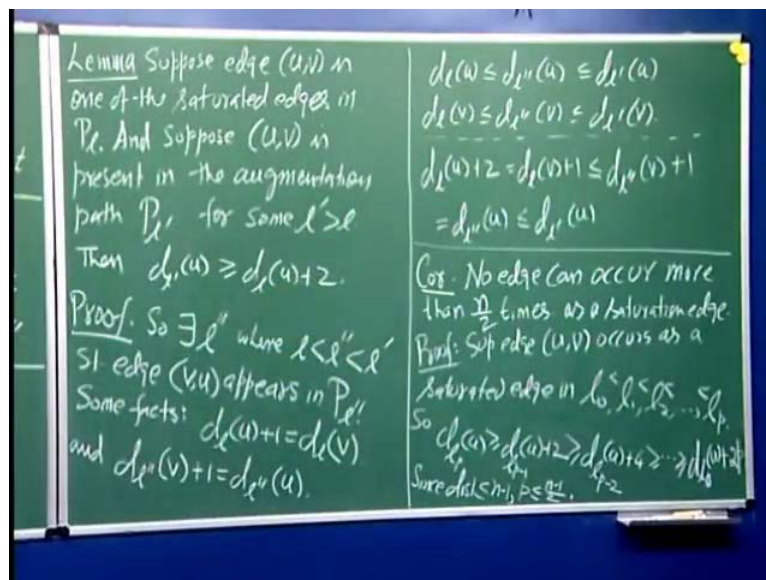 t
Lemma Suppose edge (u,v) is
one of the saturated edges in
Pℓ. And suppose (u,v) is
present in the augmentation
path Pℓ' for some ℓ'>ℓ
Then dℓ'(u) ≥ dℓ(u)+2.
Proof. So ∃ ℓ'' where ℓ<ℓ''<ℓ'
st edge (v,u) appears in Pℓ''.
Some facts: dℓ(u)+1=dℓ(v)
and dℓ''(v)+1=dℓ''(u).
dℓ(u) ≤ dℓ''(u) ≤ dℓ'(u)
dℓ(v) ≤ dℓ''(v) ≤ dℓ'(v).
dℓ(u)+2=dℓ(v)+1 ≤ dℓ''(v)+1
=dℓ''(u) ≤ dℓ'(u)
Cor. No edge can occur more
than n/2 times as a saturation edge.
Proof: Sup edge (u,v) occurs as a
saturated edge in ℓ₀<ℓ₁<ℓ₂<...<ℓp.
So dℓp(u) ≥ dℓp-1(u)+2 ≥ dℓp-2(u)+4 ≥ ... ≥ dℓ₀(u)+2p
Since dist ≤ n-1, p ≤ n-1/2.